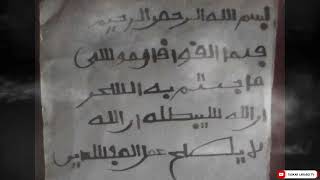 بسم الله الرحمن الرحيم
فلما القوا قال موسى
ما جئتم به السحر
ان الله سيبطله ان الله
لا يصلح عمل المفسدين